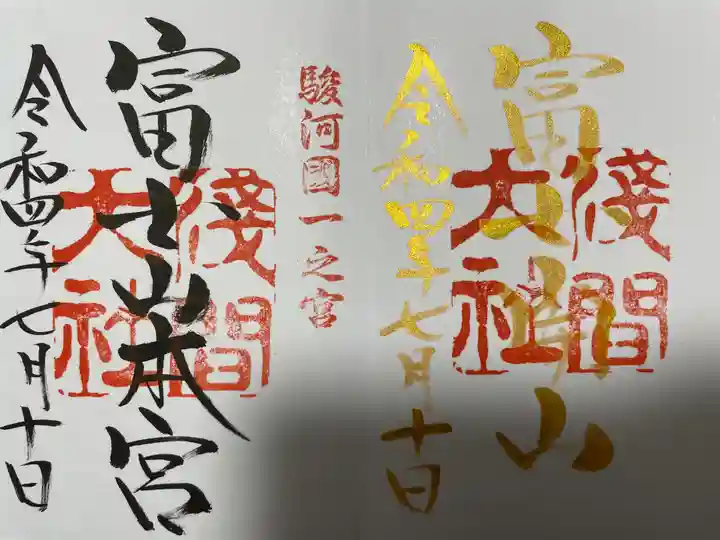 富士山
淺間
大社
令和四年七月十日
駿河國一之宮
富士山本宮
淺間
大社
令和四年七月十日